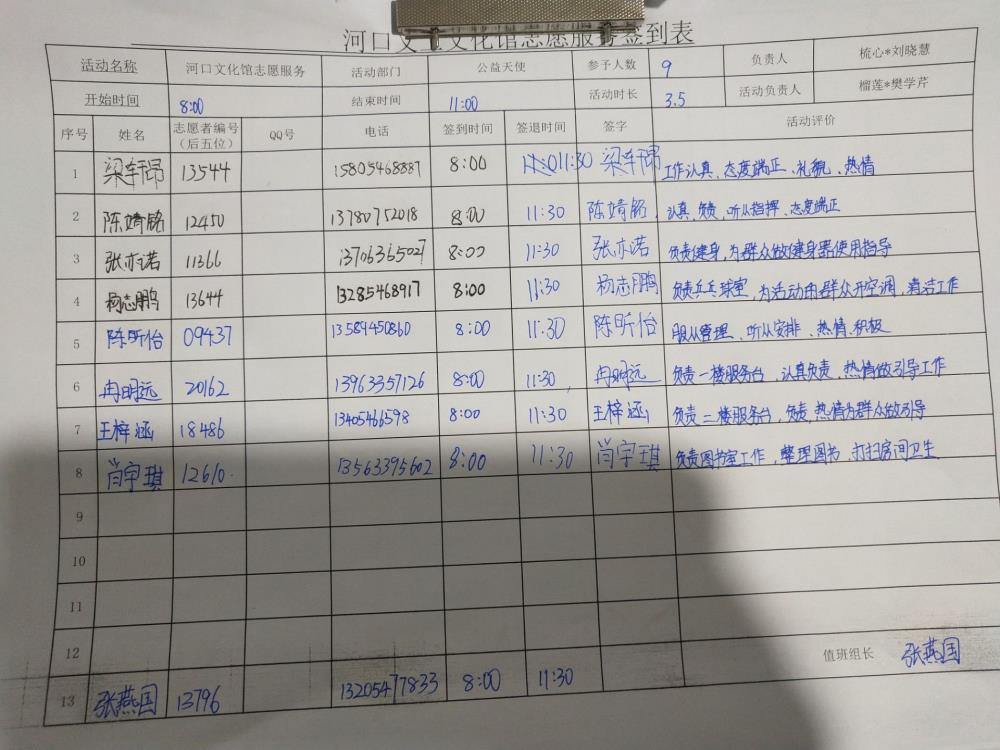 河口文化馆志愿服务签到表
活动名称 河口文化馆志愿服务 活动部门 公益天使 参予人数 9 负责人 梳心*刘晓慧
开始时间 8:00 结束时间 11:00 活动时长 3.5 活动负责人 榴莲*樊学芹
序号 姓名 志愿者编号（后五位） QQ号 电话 签到时间 签退时间 签字 活动评价
1 梁轩昂 13544 15805468887 8:00 11:30 梁轩昂 工作认真、态度端正、礼貌、热情
2 陈靖铭 12450 13780752018 8:00 11:30 陈靖铭 认真、负责，听从指挥、态度端正
3 张亦诺 11366 13706365027 8:00 11:30 张亦诺 负责健身，为群众做健身器使用指导
4 杨志鹏 13644 13285468917 8:00 11:30 杨志鹏 负责乒乓球室，为活动的群众开空调，清洁工作
5 陈昕怡 09437 13589450860 8:00 11:30 陈昕怡 服从管理、听从安排、热情、积极
6 冉明远 20162 13963357126 8:00 11:30 冉明远 负责一楼服务台，认真负责，热情做引导工作
7 王梓涵 18486 13405466598 8:00 11:30 王梓涵 负责二楼服务台，负责，热情为群众做引导
8 肖宇琪 12610 13563395602 8:00 11:30 肖宇琪 负责图书室工作，整理图书，打扫房间卫生
9
10
11
12 值班组长 张燕国
13 张燕国 13796 13205477833 8:00 11:30